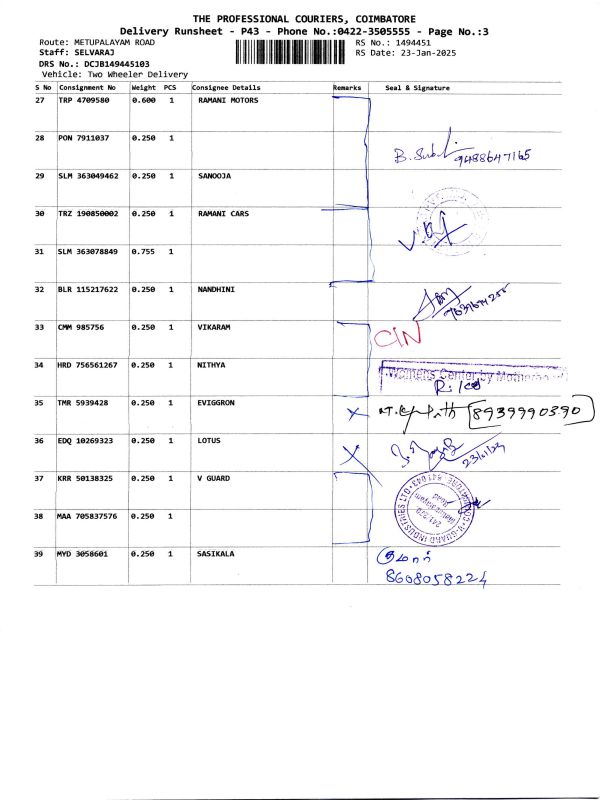 THE PROFESSIONAL COURIERS, COIMBATORE
Delivery Runsheet - P43 - Phone No.:0422-3505555 - Page No.:3
Route: METUPALAYAM ROAD RS No.: 1494451
Staff: SELVARAJ RS Date: 23-Jan-2025
DRS No.: DCJB149445103
Vehicle: Two Wheeler Delivery
S No Consignment No Weight PCS Consignee Details Remarks Seal & Signature
27 TRP 4709580 0.600 1 RAMANI MOTORS
28 PON 7911037 0.250 1
9488647165
29 SLM 363049462 0.250 1 SANOOJA
30 TRZ 190850002 0.250 1 RAMANI CARS
31 SLM 363078849 0.755 1
32 BLR 115217622 0.250 1 NANDHINI
33 CMM 985756 0.250 1 VIKARAM
CIN
34 HRD 756561267 0.250 1 NITHYA
Womens Center by Motherhood
35 TMR 5939428 0.250 1 EVIGGRON
8939990390
36 EDQ 10269323 0.250 1 LOTUS
37 KRR 50138325 0.250 1 V GUARD
V-GUARD INDUSTRIES LTD
38 MAA 705837576 0.250 1
39 MYD 3058601 0.250 1 SASIKALA
குமார்
8608058224